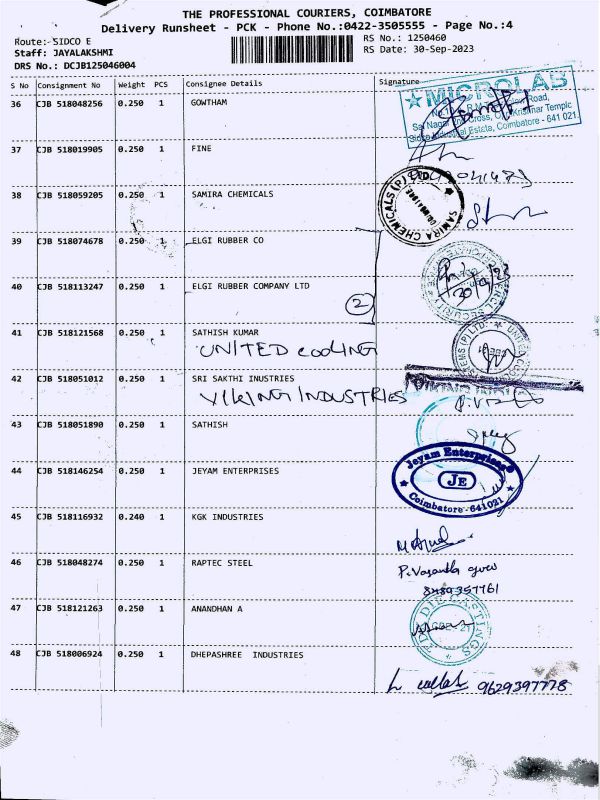 THE PROFESSIONAL COURIERS, COIMBATORE
Delivery Runsheet - PCK - Phone No.:0422-3505555 - Page No.:4
Route:- SIDCO E
RS No.: 1250460
Staff: JAYALAKSHMI
RS Date: 30-Sep-2023
DRS No.: DCJB125046004
S No Consignment No Weight PCS Consignee Details Signature
36 CJB 518048256 0.250 1 GOWTHAM
MICROLAB
Coimbatore - 641 021.
37 CJB 518019905 0.250 1 FINE
38 CJB 518059205 0.250 1 SAMIRA CHEMICALS
SAMIRA CHEMICALS (P) LTD.
39 CJB 518074678 0.250 1 ELGI RUBBER CO
40 CJB 518113247 0.250 1 ELGI RUBBER COMPANY LTD
2
41 CJB 518121568 0.250 1 SATHISH KUMAR
UNITED COOLING
42 CJB 518051012 0.250 1 SRI SAKTHI INUSTRIES
VIKING INDUSTRIES
43 CJB 518051890 0.250 1 SATHISH
44 CJB 518146254 0.250 1 JEYAM ENTERPRISES
Jeyam Enterprises
JE
Coimbatore - 641021
45 CJB 518116932 0.240 1 KGK INDUSTRIES
46 CJB 518048274 0.250 1 RAPTEC STEEL
P. Vasantha
8489357761
47 CJB 518121263 0.250 1 ANANDHAN A
DIE CASTINGS
48 CJB 518006924 0.250 1 DHEPASHREE INDUSTRIES
9629397778